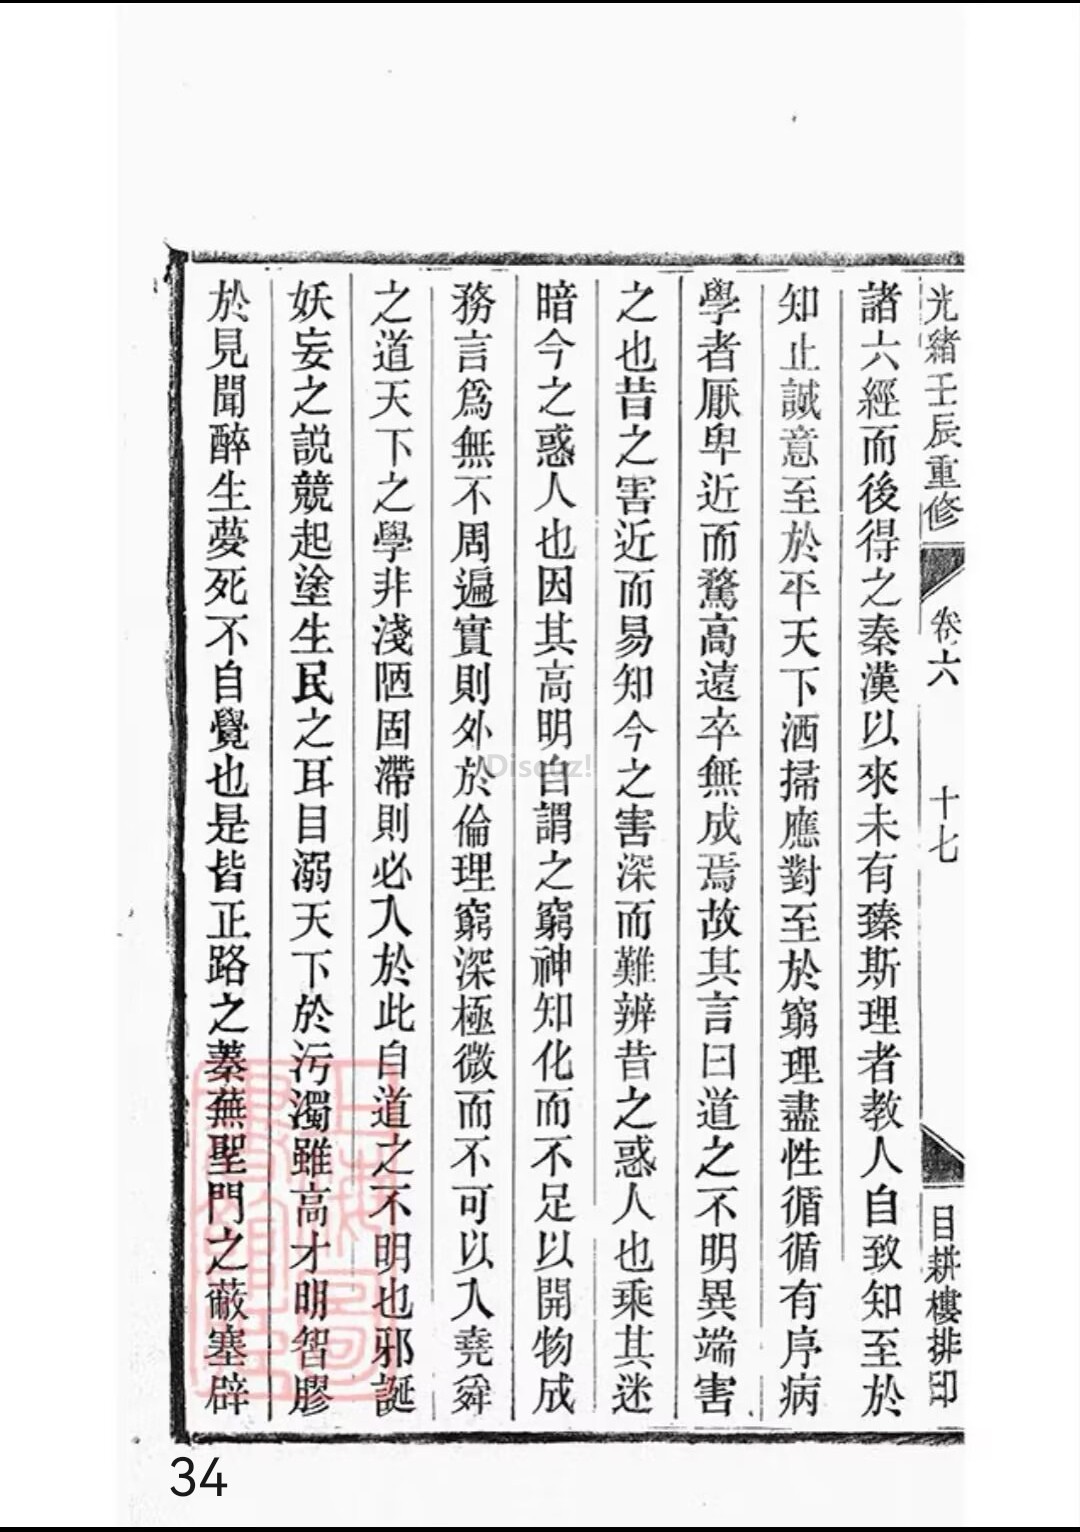 光緒壬辰重修
卷六
十七
目耕樓排印
諸六經而後得之秦漢以來未有臻斯理者教人自致知至於
知止誠意至於平天下洒掃應對至於窮理盡性循循有序病
學者厭卑近而騖高遠卒無成焉故其言曰道之不明異端害
之也昔之害近而易知今之害深而難辨昔之惑人也乘其迷
暗今之惑人也因其高明自謂之窮神知化而不足以開物成
務言爲無不周遍實則外於倫理窮深極微而不可以入堯舜
之道天下之學非淺陋固滯則必入於此自道之不明也邪誕
妖妄之説競起塗生民之耳目溺天下於污濁雖高才明智膠
於見聞醉生夢死不自覺也是皆正路之蓁蕪聖門之蔽塞辟
Discuz!
34